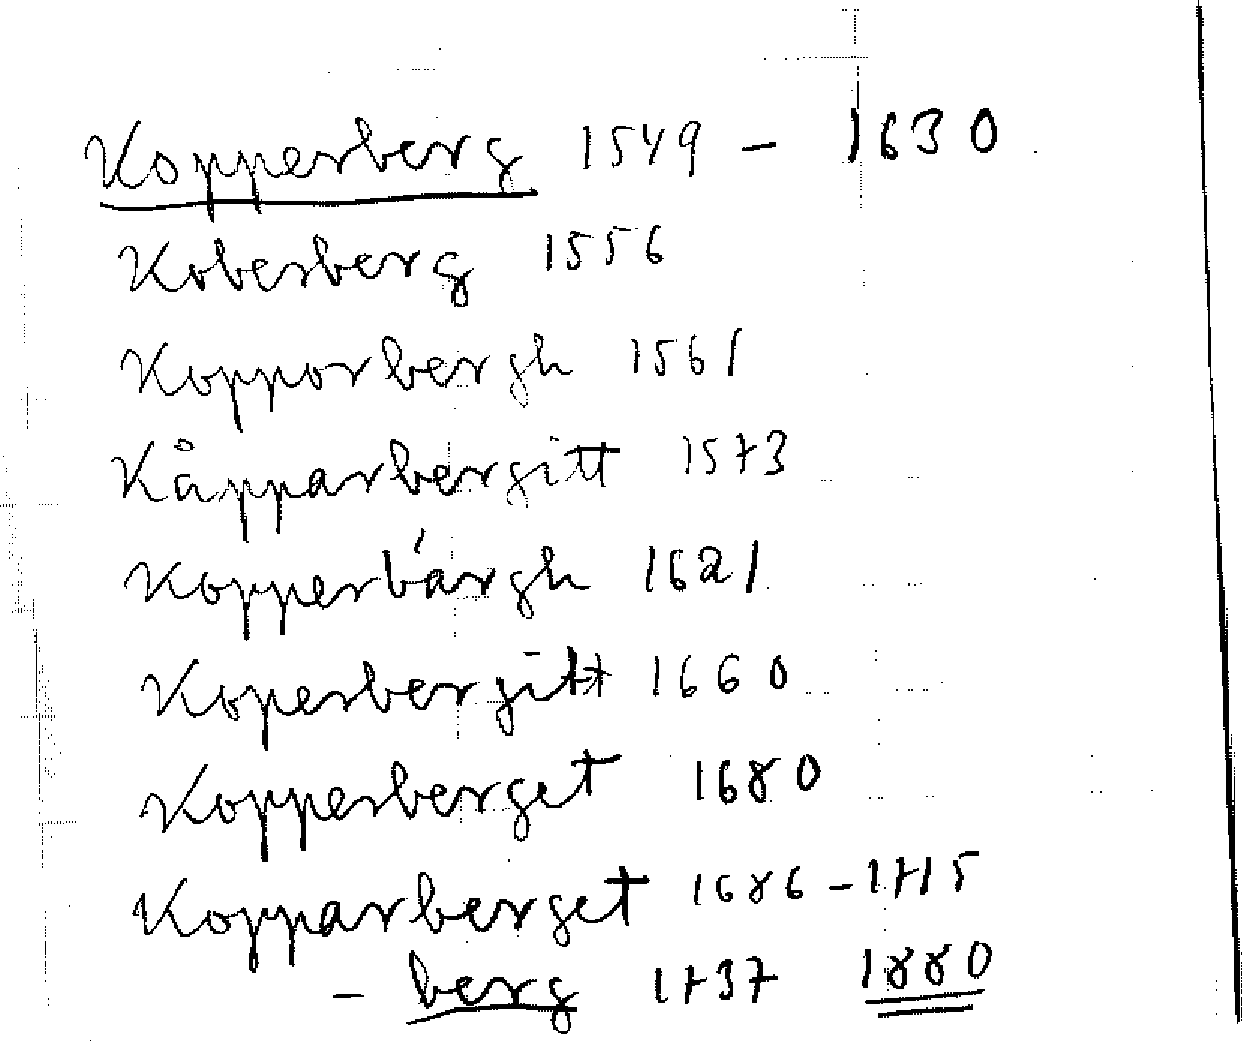 Kopperberg 1549 - 1630
Koberberg 1556
Kopporbergh 1561
Kåpparbergitt 1573
Kopperbárgh 1621
Koperbergitt 1660
Kopperberget 1680
Kopparberget 1686-1715
- berg 1737 1880